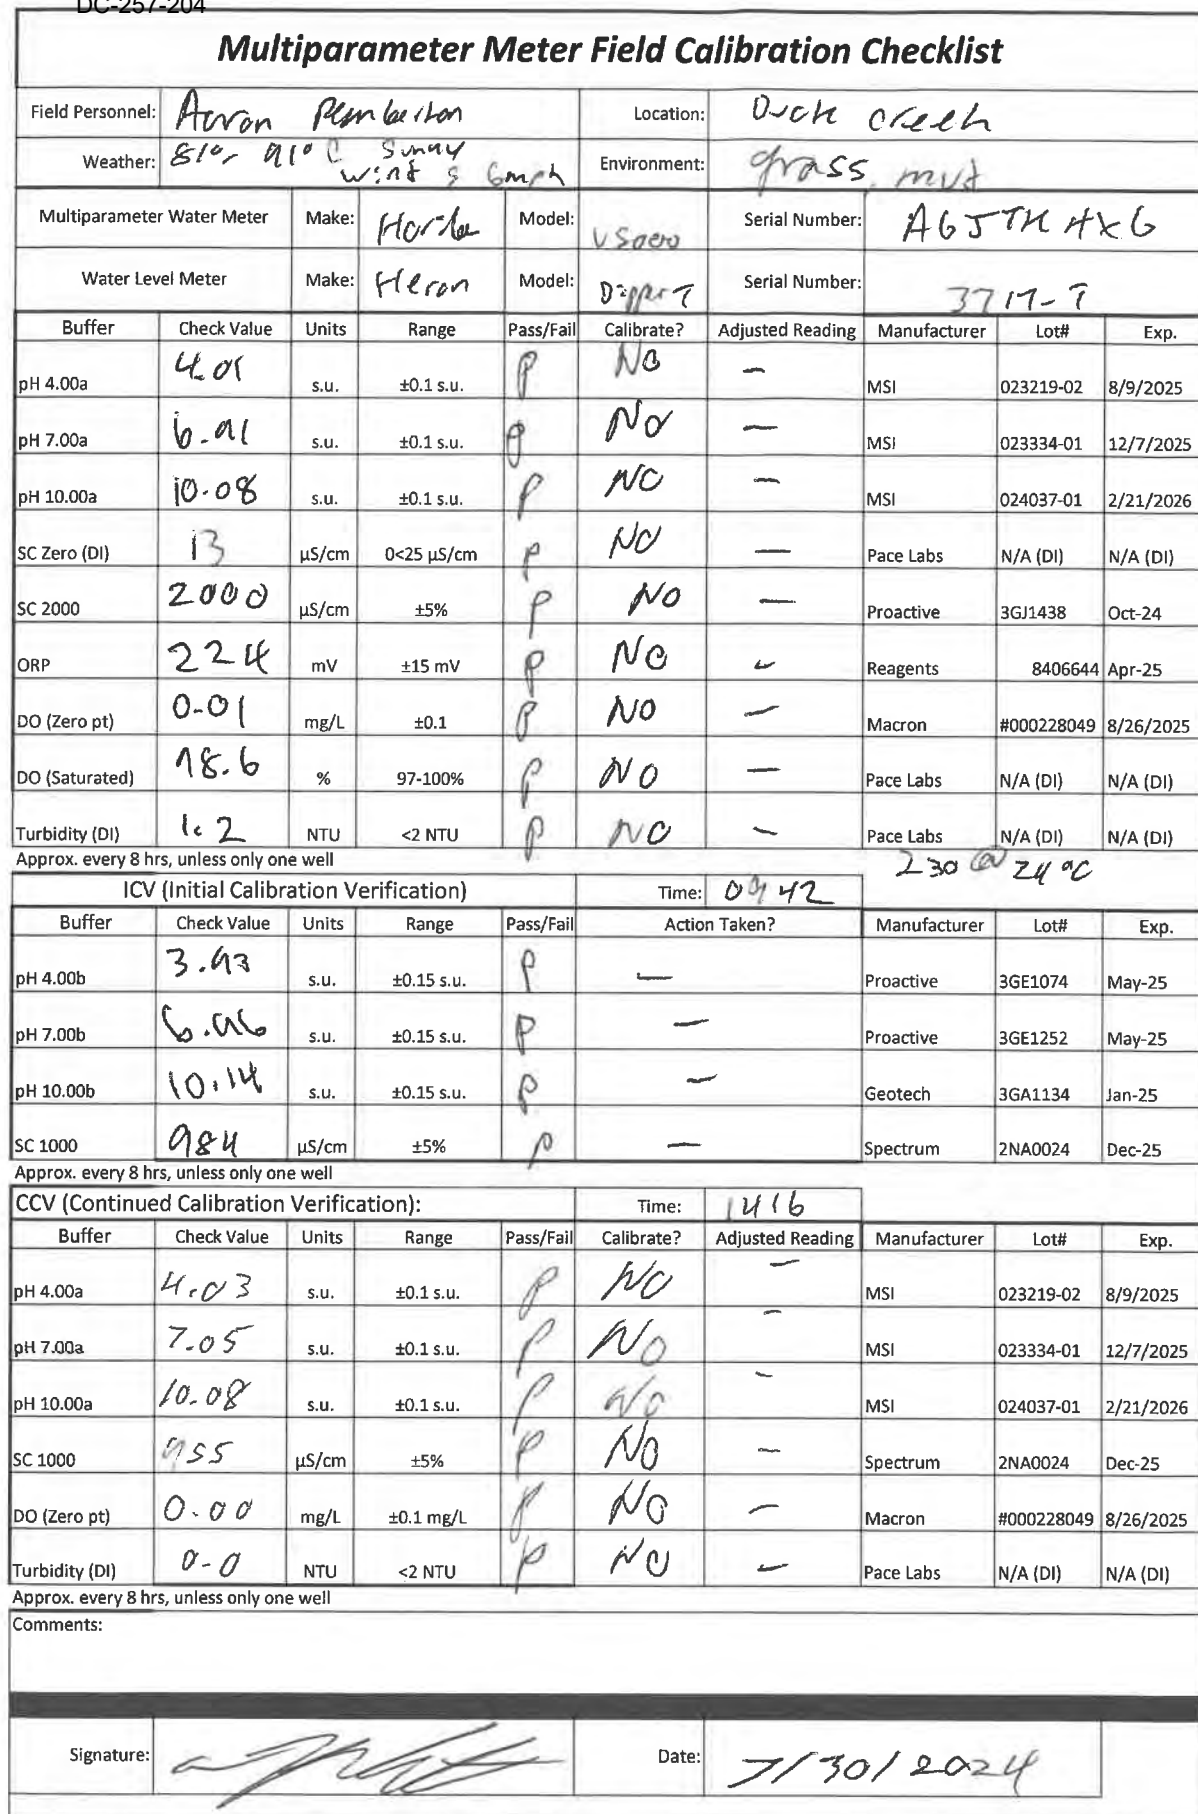 DC-257-204
Multiparameter Meter Field Calibration Checklist
Field Personnel: Aaron Pemberton Location: Duck Creek
Weather: 81°- 91° Sunny Environment: grass, mud
wind S 6mph
Multiparameter Water Meter Make: Horiba Model: Serial Number: AG5TKHXG
Water Level Meter Make: Heron Model: Dipper T Serial Number: 3717-T
Buffer Check Value Units Range Pass/Fail Calibrate? Adjusted Reading Manufacturer Lot# Exp.
pH 4.00a 4.01 s.u. ±0.1 s.u. P NO — MSI 023219-02 8/9/2025
pH 7.00a 6.91 s.u. ±0.1 s.u. P NO — MSI 023334-01 12/7/2025
pH 10.00a 10.08 s.u. ±0.1 s.u. P NO — MSI 024037-01 2/21/2026
SC Zero (DI) 13 µS/cm 0<25 µS/cm P NO — Pace Labs N/A (DI) N/A (DI)
SC 2000 2000 µS/cm ±5% P NO — Proactive 3GJ1438 Oct-24
ORP 224 mV ±15 mV P NO — Reagents 8406644 Apr-25
DO (Zero pt) 0.01 mg/L ±0.1 P NO — Macron #000228049 8/26/2025
DO (Saturated) 98.6 % 97-100% P NO — Pace Labs N/A (DI) N/A (DI)
Turbidity (DI) 1.2 NTU <2 NTU P NO — Pace Labs N/A (DI) N/A (DI)
Approx. every 8 hrs, unless only one well
230 @ 24 °C
ICV (Initial Calibration Verification) Time: 0942
Buffer Check Value Units Range Pass/Fail Action Taken? Manufacturer Lot# Exp.
pH 4.00b 3.93 s.u. ±0.15 s.u. P — Proactive 3GE1074 May-25
pH 7.00b 6.96 s.u. ±0.15 s.u. P — Proactive 3GE1252 May-25
pH 10.00b 10.14 s.u. ±0.15 s.u. P — Geotech 3GA1134 Jan-25
SC 1000 984 µS/cm ±5% P — Spectrum 2NA0024 Dec-25
Approx. every 8 hrs, unless only one well
CCV (Continued Calibration Verification): Time: 1416
Buffer Check Value Units Range Pass/Fail Calibrate? Adjusted Reading Manufacturer Lot# Exp.
pH 4.00a 4.03 s.u. ±0.1 s.u. P NO — MSI 023219-02 8/9/2025
pH 7.00a 7.05 s.u. ±0.1 s.u. P No — MSI 023334-01 12/7/2025
pH 10.00a 10.08 s.u. ±0.1 s.u. P No — MSI 024037-01 2/21/2026
SC 1000 955 µS/cm ±5% P No — Spectrum 2NA0024 Dec-25
DO (Zero pt) 0.00 mg/L ±0.1 mg/L P No — Macron #000228049 8/26/2025
Turbidity (DI) 0.0 NTU <2 NTU P NO — Pace Labs N/A (DI) N/A (DI)
Approx. every 8 hrs, unless only one well
Comments:
Signature: Date: 7/30/2024